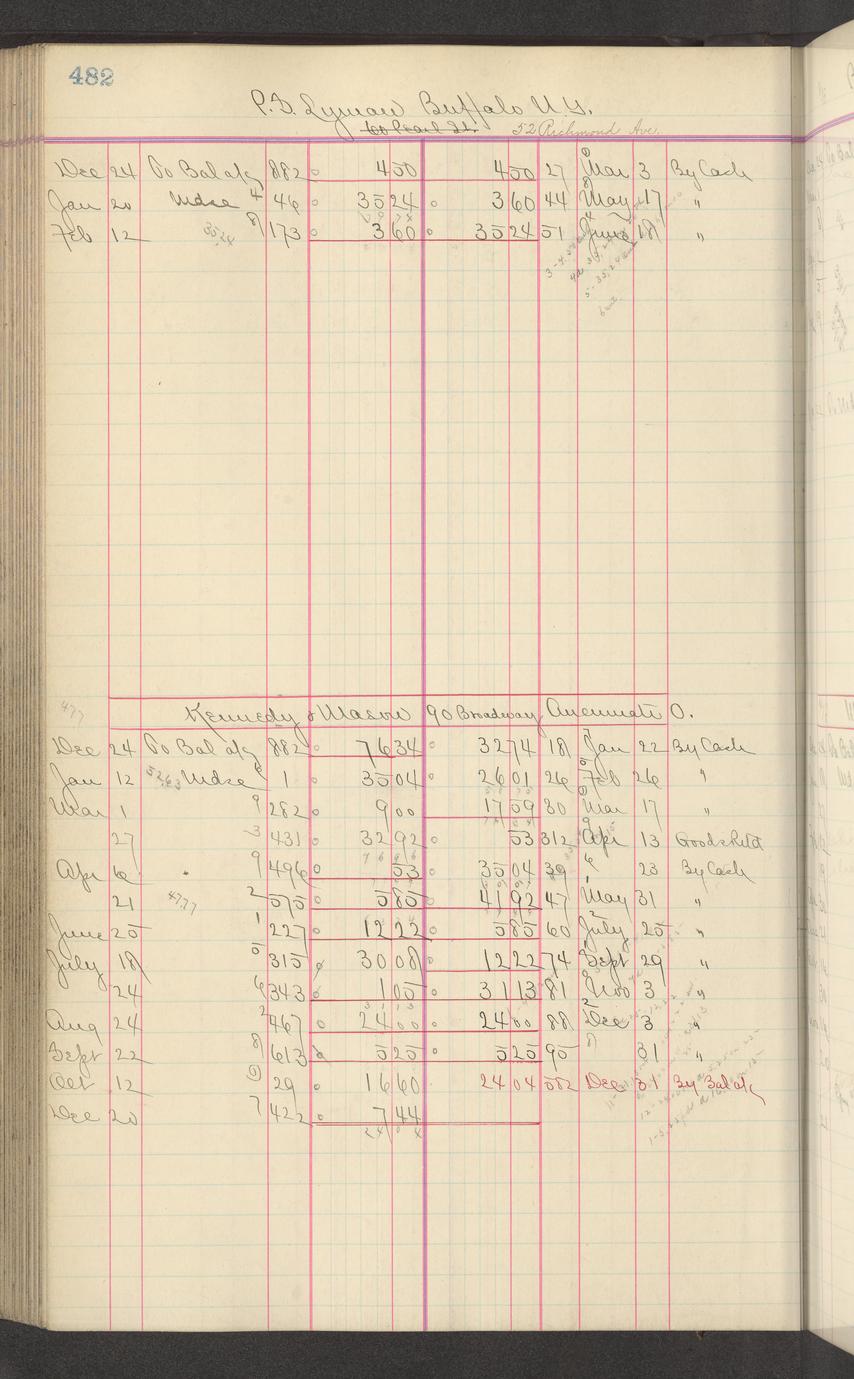 482
P. S. Lyman Buffalo N. Y.
60 Pearl St. 52 Richmond Ave.
Dec 24 To Bal a/c 882 4 50 4 50 27 Mar 3 By Cash
Jan 20 Mdse 4 46 35 24 3 60 44 May 17 "
Feb 12 35,24 8 173 3 60 35 24 51 June 18 "
477
Kennedy & Mason 90 Broadway Cincinnati O.
Dec 24 To Bal a/c 882 76 34 32 74 18 Jan 22 By Cash
Jan 12 52,63 Mdse 6 1 35 04 26 01 26 Feb 26 "
Mar 1 9 282 9 00 17 59 30 Mar 17 "
27 3 431 32 92 53 312 Apr 13 Goods Retd
Apr 6 9 496 53 35 04 39 23 By Cash
21 47,77 2 575 5 85 41 92 47 May 31 "
June 25 1 227 12 22 5 85 60 July 25 "
July 18 5 315 30 08 12 22 74 Sept 29 "
24 6 343 1 05 31 13 81 Nov 3 "
Aug 24 2 467 24 00 24 00 88 Dec 3 "
Sept 22 8 613 5 25 5 25 95 31 "
Oct 12 29 16 60 24 04 582 Dec 31 By Bal a/c
Dec 20 7 422 7 44
24 04